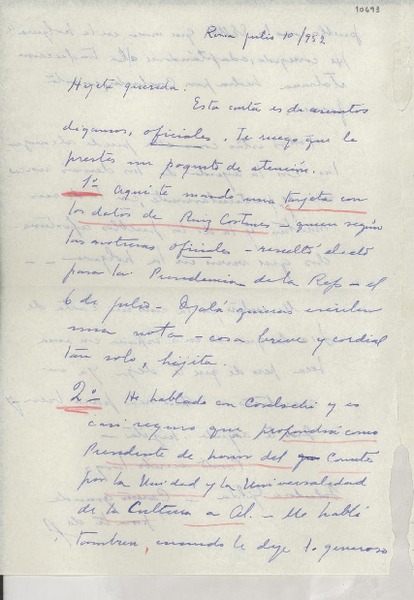 10693
Roma julio 10/952
Hijita querida.
Esta carta es de asuntos
digamos, oficiales. Te ruego que le
prestes un poquito de atención.
1º Aquí te mando una tarjeta con
los datos de Ruiz Cortines – quien según
las noticias oficiales – resultó electo
para la Presidencia de la Rep – el
6 de julio – Ojalá quieras escribir
una nota – cosa breve y cordial
tan solo, hijita.
2º He hablado con y es
casi seguro que propondrá como
Presidente de honor del Comité
por la Unidad y la Universalidad
de la Cultura a – Me habló
también, cuando le dije lo generoso